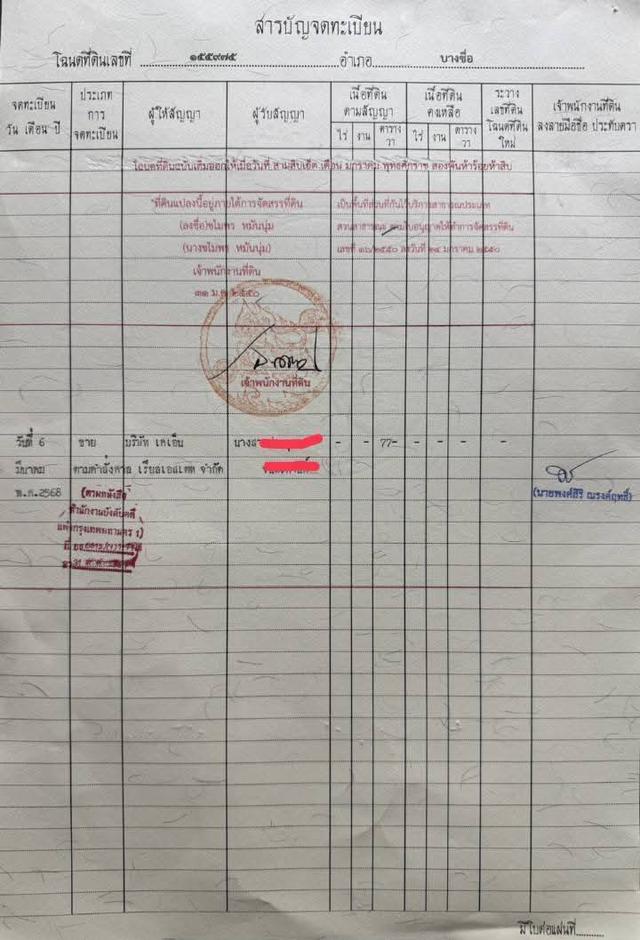 สารบัญจดทะเบียน
โฉนดที่ดินเลขที่ ๑๕๕๙๗๕ อำเภอ บางซื่อ
จดทะเบียน วัน เดือน ปี
ประเภท การ จดทะเบียน
ผู้ให้สัญญา
ผู้รับสัญญา
เนื้อที่ดิน ตามสัญญา
ไร่ งาน ตาราง วา
เนื้อที่ดิน คงเหลือ
ไร่ งาน ตาราง วา
ระวาง เลขที่ดิน โฉนดที่ดิน ใหม่
เจ้าพนักงานที่ดิน ลงลายมือชื่อ ประทับตรา
โฉนดที่ดินฉบับเดิมออกให้เมื่อวันที่ สามสิบเอ็ด เดือน มกราคม พุทธศักราช สองพันห้าร้อยห้าสิบ
"ที่ดินแปลงนี้อยู่ภายใต้การจัดสรรที่ดิน เป็นพื้นที่ส่วนที่กันไว้บริการสาธารณประเภท
(ลงชื่อ)ชไมพร หมั่นนุ่ม สวนสาธารณะ ตามใบอนุญาตให้ทำการจัดสรรที่ดิน
(นางชไมพร หมั่นนุ่ม) เลขที่ ๑๖/๒๕๕๐ ลงวันที่ ๒๔ มกราคม ๒๕๕๐
เจ้าพนักงานที่ดิน
๓๑ ม.ค. ๒๕๕๐
เจ้าพนักงานที่ดิน
วันที่ 6 ขาย บริษัท เคเอ็น นางสา - - 77- - - - -
มีนาคม ตามคำสั่งศาล เรียลเอสเตท จำกัด
พ.ศ.2568 (ตามหนังสือ (นายพงศ์สิริ ณรงค์ฤทธิ์)
สำนักงานบังคับคดี
แพ่งกรุงเทพมหานคร 1)
มีใบต่อแผ่นที่